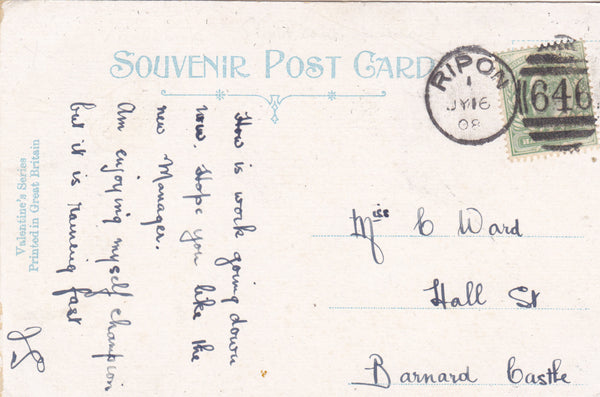 SOUVENIR POST CARD
RIPON
1
JY 16
08
646
How is work going down
now. Hope you like the
new Manager.
Am enjoying myself champion
but it is raining fast
JS
Miss C Ward
Hall St
Barnard Castle
Valentine's Series
Printed in Great Britain